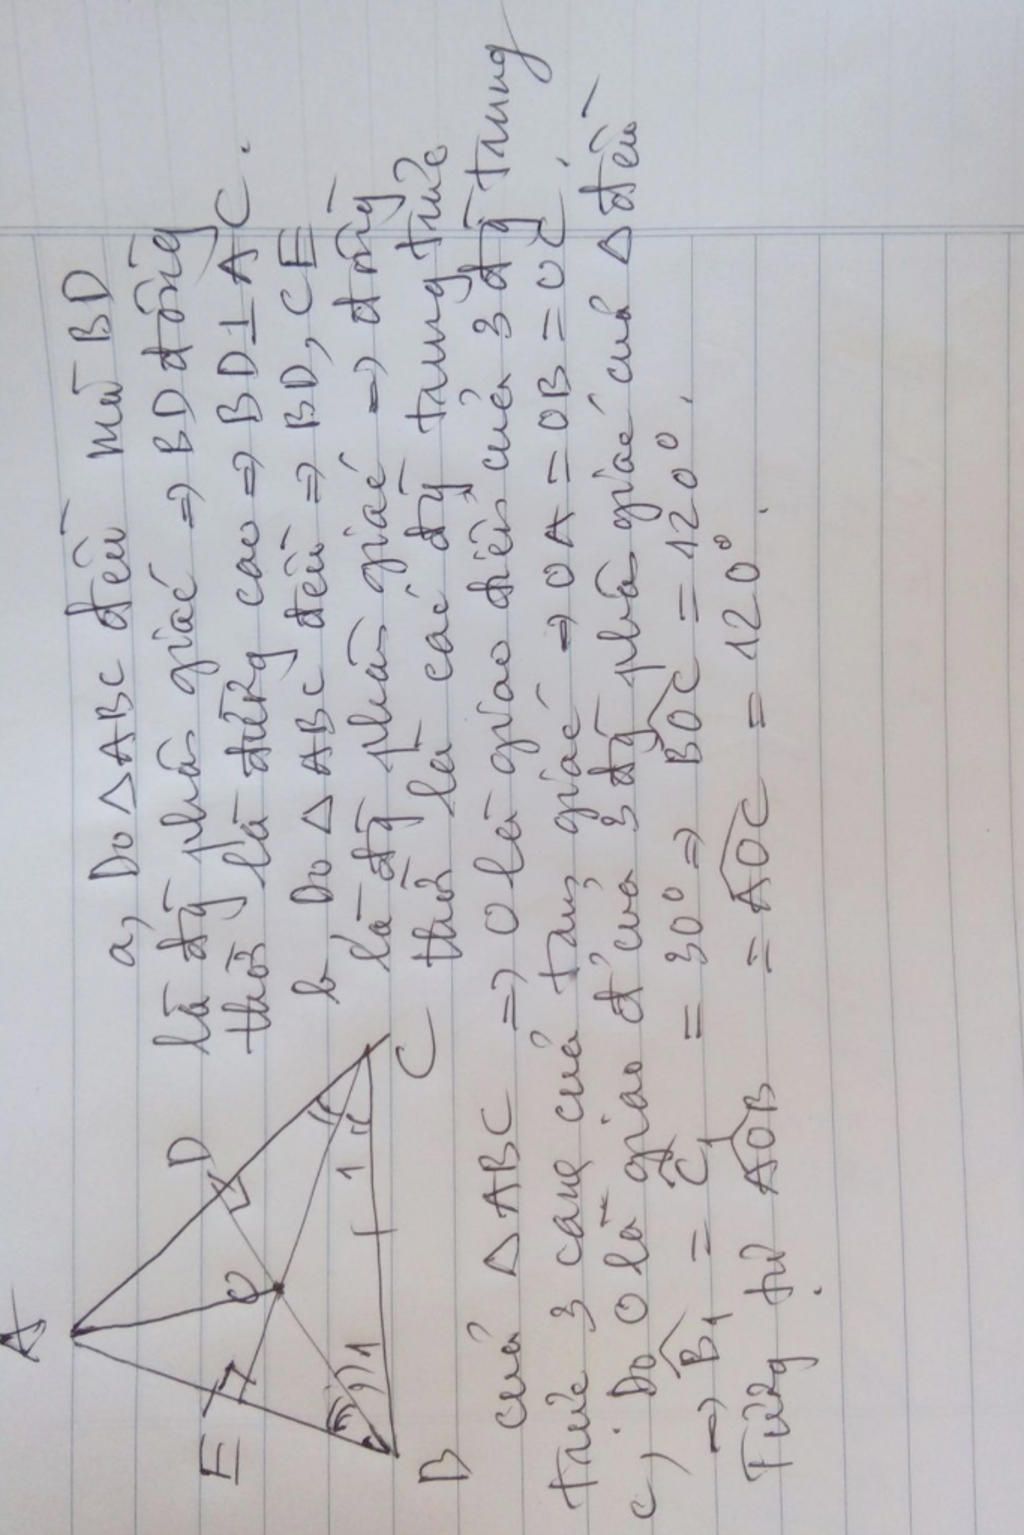 a, Do △ABC đều mà BD
là đg phân giác ⇒ BD đồng
thời là đường cao ⇒ BD⊥AC.
b Do △ABC đều ⇒ BD, CE
là đg phân giác ⇒ đồng
thời là các đg trung trực
của △ABC ⇒ O là giao điểm của 3 đg trung
trực 3 cạnh của tam giác ⇒ OA = OB = OC.
c, Do O là giao đ' của 3 đg phân giác của △ đều
⇒ B̂₁ = Ĉ₁ = 30° ⇒ BOC = 120°.
Tương tự AOB = AOC = 120°.
A
E
O
D
B
1
1
C